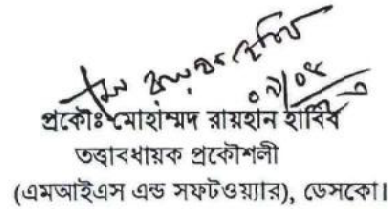 প্রকৌঃ মোহাম্মদ রায়হান হাবিব
তত্ত্বাবধায়ক প্রকৌশলী
(এমআইএস এন্ড সফটওয়্যার), ডেসকো।